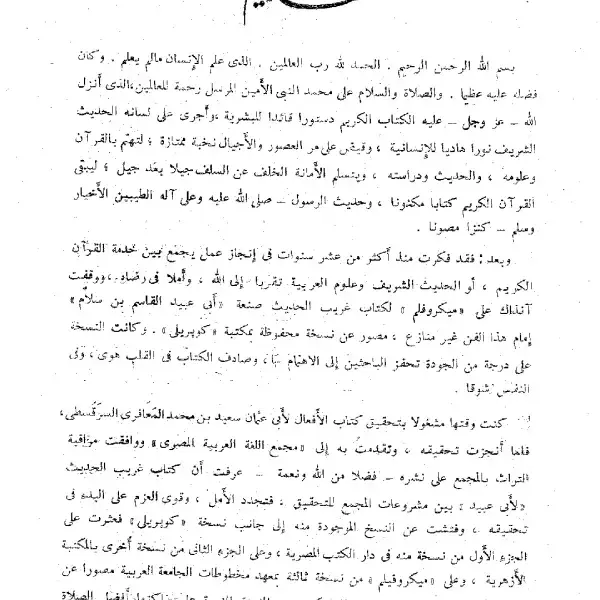 بسم الله الرحمن الرحيم . الحمد لله رب العالمين . الذى علم الإنسان مالم يعلم . وكان
فضله عليه عظيما . والصلاة والسلام على محمد النبى الأمين المرسل رحمة للعالمين ،الذى أنزل
الله – عز وجل – عليه الكتاب الكريم دستورا قائدا للبشرية ،وأجرى على لسانه الحديث
الشريف نورا هاديا للإنسانية ، وقيض على مر العصور والأجيال نخبة ممتازة ؛ لتهتم بالقرآن
وعلومه ، والحديث ودراسته ، ويتسلم الأمانة الخلف عن السلف جيلا بعد جيل ؛ ليبقى
القرآن الكريم كتابا مكنونا ، وحديث الرسول – صلى الله عليه وعلى آله الطيبين الأخيار
وسلم – كنزا مصونا .
وبعد : فقد فكرت منذ أكثر من عشر سنوات فى إنجاز عمل يجمع بين خدمة القرآن
الكريم ، أو الحديث الشريف وعلوم العربية تقربا إلى الله ، وأملا فى رضاه ،ووقفت
آنذاك على « ميكروفلم » لكتاب غريب الحديث صنعة «أبى عبيد القاسم بن سلام»
إمام هذا الفن غير منازع ، مصور عن نسخة محفوظة بمكتبة «كوبريلى» . وكانت النسخة
على درجة من الجودة تحفز الباحثين إلى الاهتمام بها ، وصادف الكتاب فى القلب هوى ، وفى
النفس شوقا .
كنت وقتها مشغولا بتحقيق كتاب الأفعال لأبى عثمان سعيد بن محمد المعافرى السرقسطى ،
فلما أنجزت تحقيقه ، وتقدمت به إلى «مجمع اللغة العربية المصرى» ووافقت مراقبة
التراث بالمجمع على نشره – فضلا من الله ونعمة – عرفت أن كتاب غريب الحديث
«لأبى عبيد» بين مشروعات المجمع للتحقيق ، فتجدد الأمل ، وقوى العزم على البدء فى
تحقيقه ، وفتشت عن النسخ الموجودة منه إلى جانب نسخة «كوبريلى» فعثرت على
الجزء الأول من نسخة منه فى دار الكتب المصرية ، وعلى الجزء الثانى من نسخة أخرى بالمكتبة
الأزهرية ، وعلى «ميكروفيلم» من نسخة ثالثة بمعهد مخطوطات الجامعة العربية مصورا عن
أفضل الصلاة